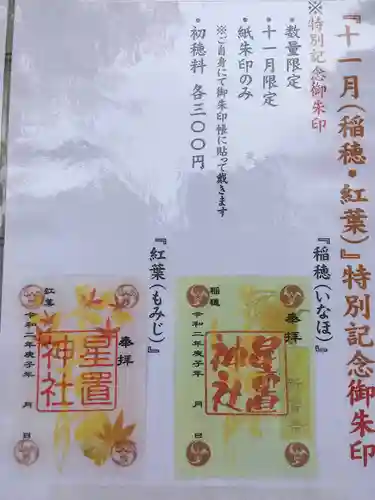 『十一月(稲穂・紅葉)』特別記念御朱印
※特別記念御朱印
・数量限定
・十一月限定
・紙朱印のみ
※ご自身にて御朱印帳に貼って戴きます
・初穂料 各三００円
『稲穂(いなほ)』
奉拝
星置
神社
稲穂
令和二年庚子年 月 日
『紅葉(もみじ)』
奉拝
星置
神社
紅葉
令和二年庚子年 月 日